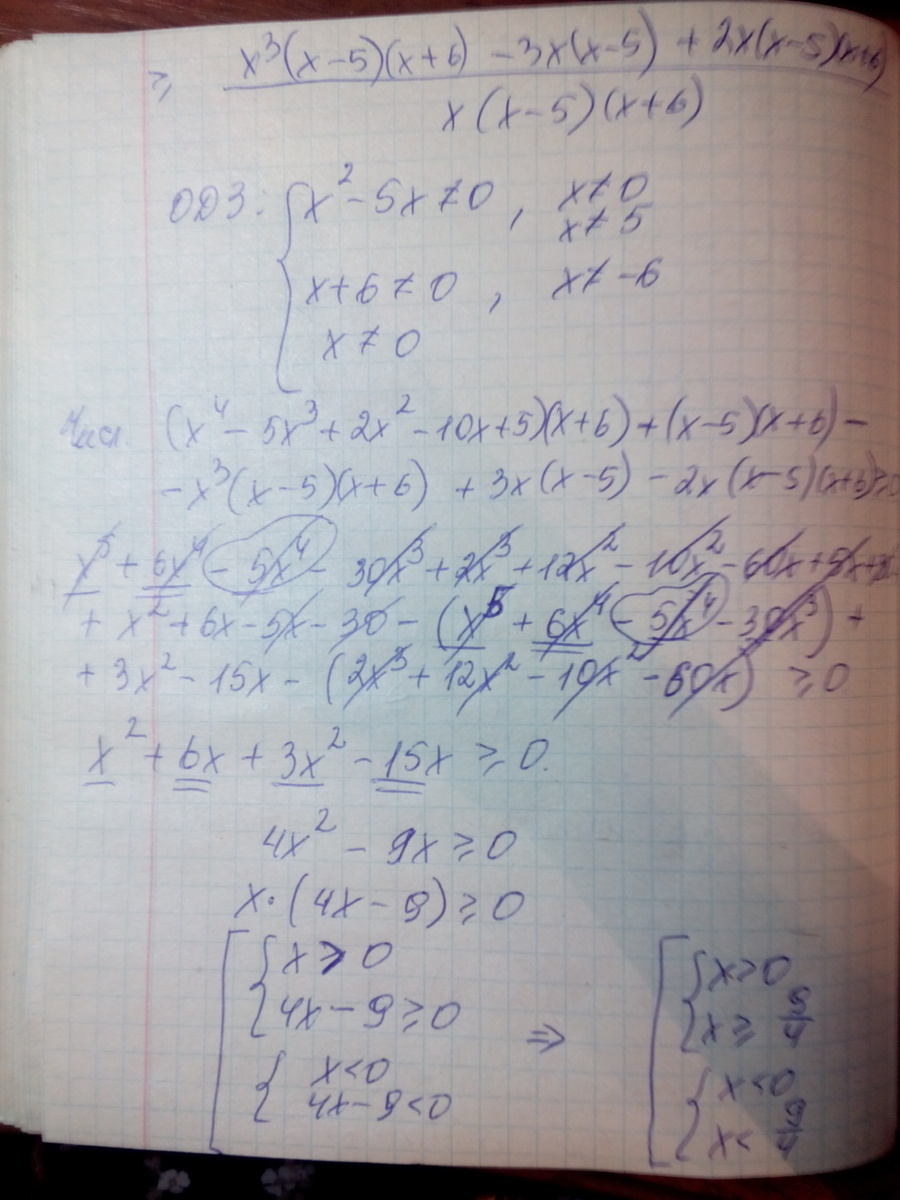 ≥ x³(x-5)(x+6) - 3x(x-5) + 2x(x-5)(x+6)
x(x-5)(x+6)
ОДЗ: { x² - 5x ≠ 0 , x ≠ 0
x ≠ 5
x + 6 ≠ 0 , x ≠ -6
x ≠ 0
Числ. (x⁴ - 5x³ + 2x² - 10x + 5)(x+6) + (x-5)(x+6) -
- x³(x-5)(x+6) + 3x(x-5) - 2x(x-5)(x+6) ≥ 0
x⁵ + 6x⁴ - 5x⁴ - 30x³ + 2x³ + 12x² - 10x² - 60x + 5x +
+ x² + 6x - 5x - 30 - (x⁵ + 6x⁴ - 5x⁴ - 30x³) +
+ 3x² - 15x - (2x³ + 12x² - 10x² - 60x) ≥ 0
x² + 6x + 3x² - 15x ≥ 0.
4x² - 9x ≥ 0
x·(4x - 9) ≥ 0
[ { x > 0
4x - 9 ≥ 0
{ x < 0
4x - 9 < 0
⇒ [ { x > 0
x ≥ 9/4
{ x < 0
x < 9/4